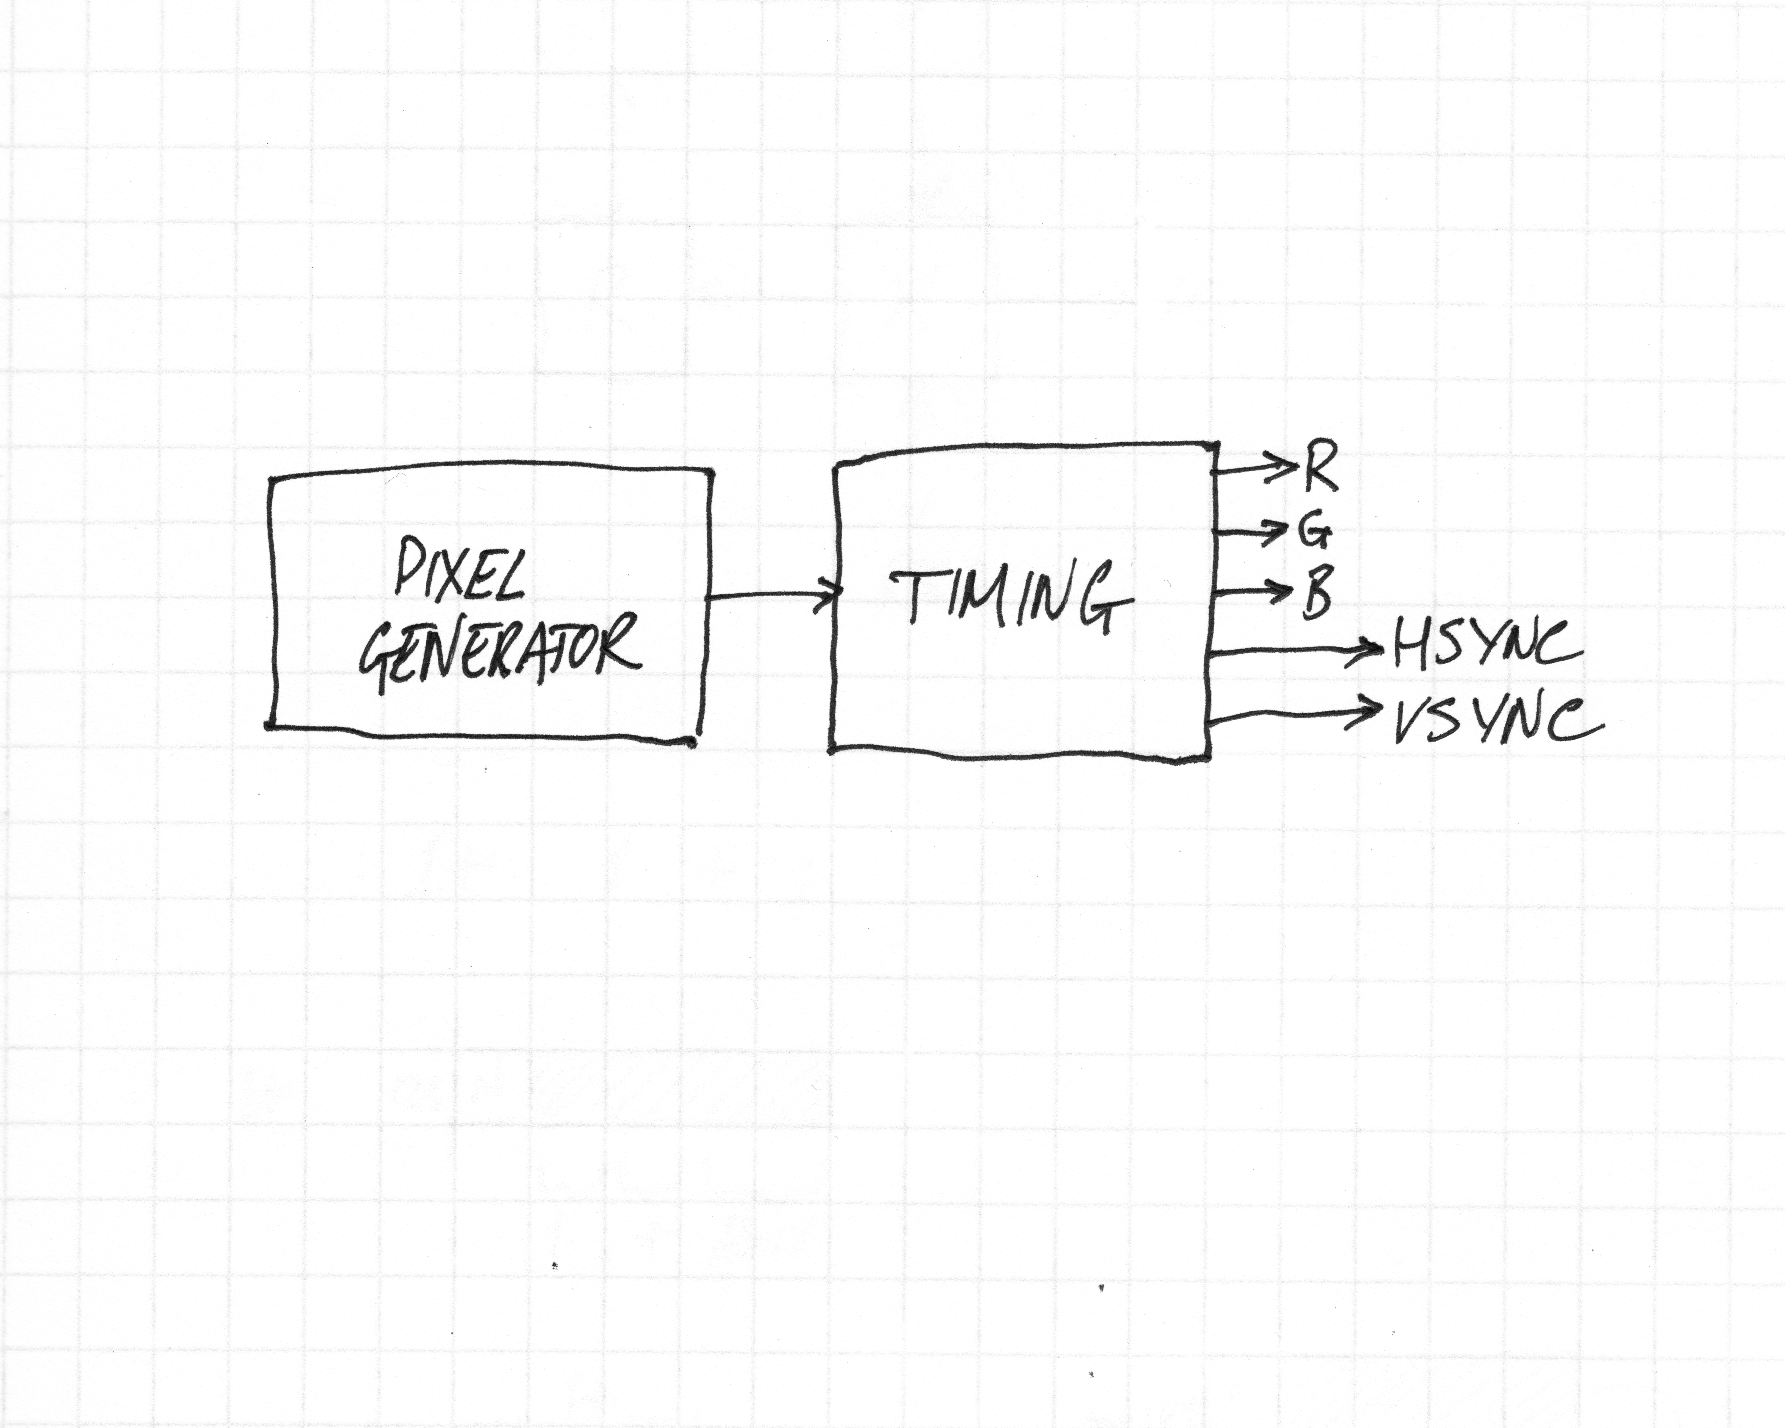 PIXEL
GENERATOR
TIMING
R
G
B
HSYNC
VSYNC